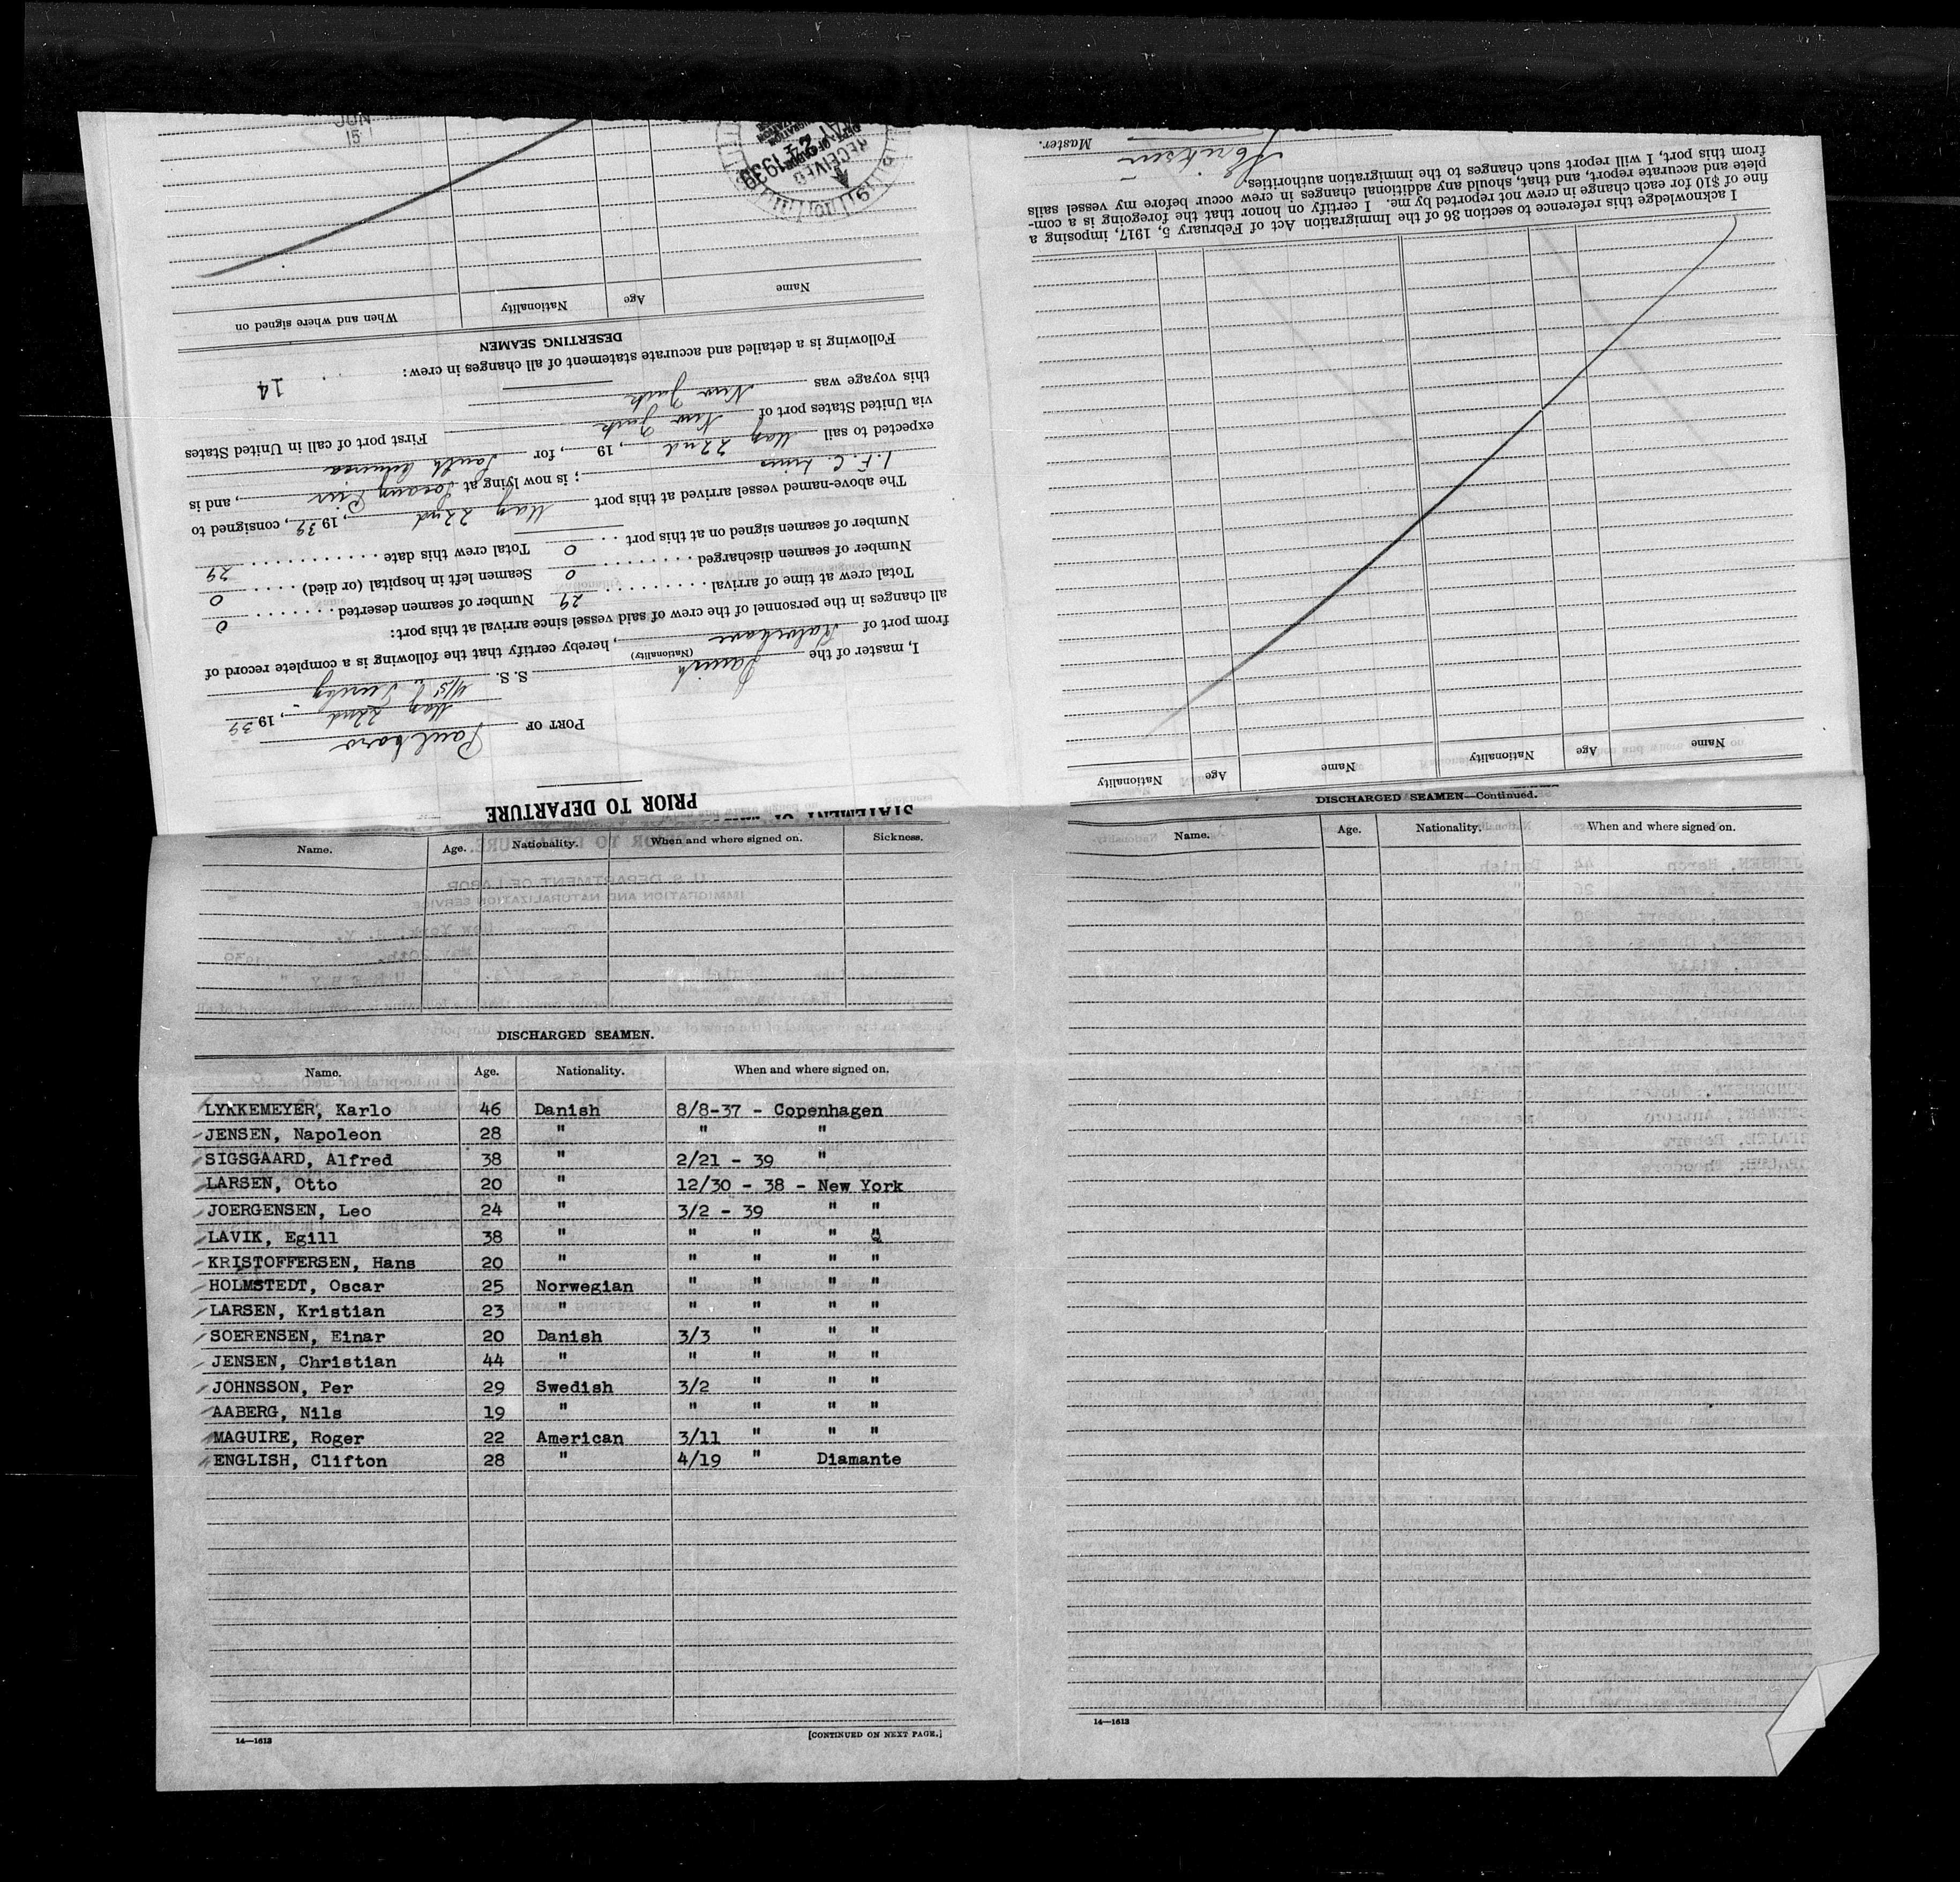 STATEMENT OF
PRIOR TO DEPARTURE
PORT OF Paulsboro
May 22nd, 1939
I, master of the Danish S. S. M/S
(Nationality)
from port of , hereby certify that the following is a complete record of
all changes in the personnel of the crew of said vessel since arrival at this port:
Total crew at time of arrival 29 Number of seamen deserted 0
Number of seamen discharged 0 Seamen left in hospital (or died) 0
Number of seamen signed on at this port 0 Total crew this date 29
The above-named vessel arrived at this port May 22nd, 1939, consigned to
I. F. C. Lines; is now lying at Socony Pier, and is
expected to sail May 22nd, 19 , for South America
via United States port of New York First port of call in United States
this voyage was New York
Following is a detailed and accurate statement of all changes in crew: 14
DESERTING SEAMEN
Name Age Nationality When and where signed on
JUN
15
RECEIVED
1939
Name Age Nationality Name Age Nationality
I acknowledge this reference to section 36 of the Immigration Act of February 5, 1917, imposing a
fine of $10 for each change in crew not reported by me. I certify on honor that the foregoing is a com-
plete and accurate report, and that, should any additional changes in crew occur before my vessel sails
from this port, I will report such changes to the immigration authorities.
Master.
Name. Age. Nationality. When and where signed on. Sickness.
DISCHARGED SEAMEN.
Name. Age. Nationality. When and where signed on.
LYKKEMEYER, Karlo 46 Danish 8/8-37 - Copenhagen
JENSEN, Napoleon 28 " " "
SIGSGAARD, Alfred 38 " 2/21 - 39 "
LARSEN, Otto 20 " 12/30 - 38 - New York
JOERGENSEN, Leo 24 " 3/2 - 39 " "
LAVIK, Egill 38 " " " " "
KRISTOFFERSEN, Hans 20 " " " " "
HOLMSTEDT, Oscar 25 Norwegian " " " "
LARSEN, Kristian 23 " " " " "
SOERENSEN, Einar 20 Danish 3/3 " " "
JENSEN, Christian 44 " " " " "
JOHNSSON, Per 29 Swedish 3/2 " " "
AABERG, Nils 19 " " " " "
MAGUIRE, Roger 22 American 3/11 " " "
ENGLISH, Clifton 28 " 4/19 " Diamante
14—1613 [CONTINUED ON NEXT PAGE.]
DISCHARGED SEAMEN—Continued.
Name. Age. Nationality. When and where signed on.
14—1613